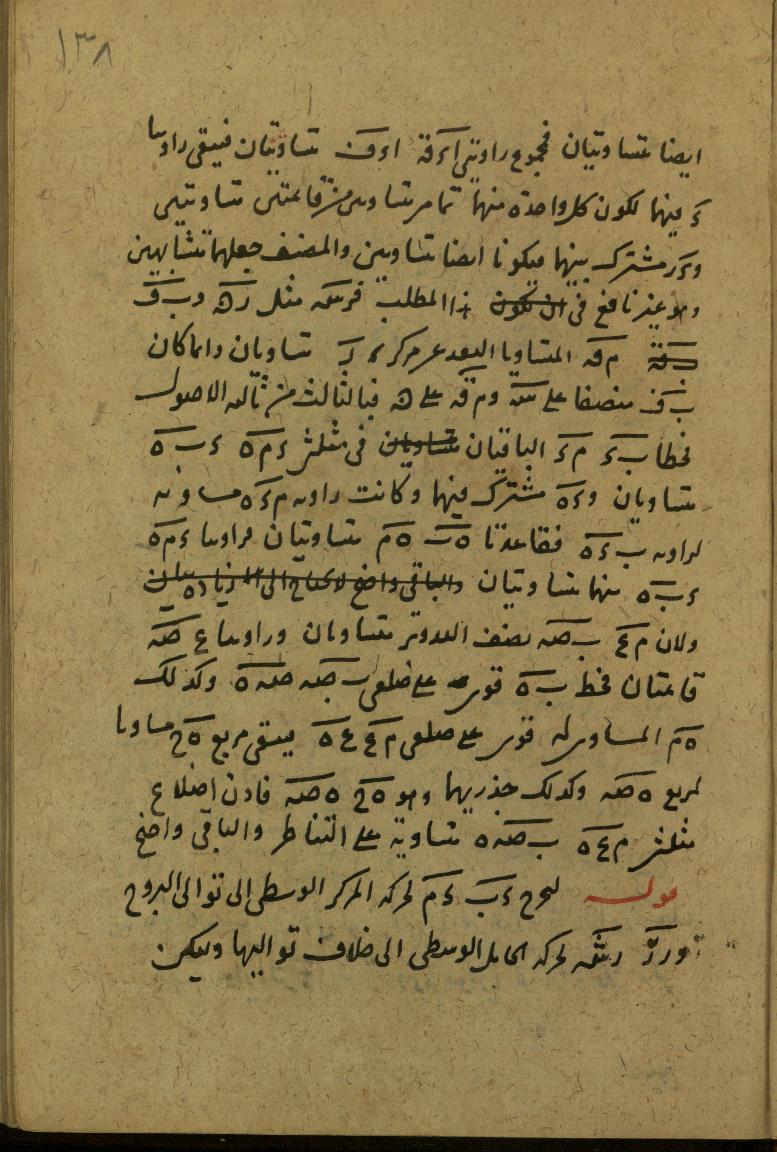 ١٣٨
ايضا متساويتان فمجموع زاويتى اءر فه اءف متساويتان فيبقى زاويتا
ء فيهما لكون كل واحدة منهما تمام متساويتين من قائمتين متساويتين
وءر مشترك بينهما فيكونا ايضا متساويين والمصنف جعلهما متشابهين
وهو غير نافع فى ان تكون هذا المطلب قوسه مثل ره وب ف
م فه المتساويا البعد عن مركز ر متساويان ولما كان
ب ف منصفا على سه وم فه على ه فبالثالث من ثالثه الاصول
فخطا ب ء م ء الباقيان متساويان فى مثلثى ء م ه ء ب ه
متساويان وء ه مشترك فيهما وكانت زاويه م ء ه مساويه
لزاويه ب ء ه فقاعدتا ه ب ه م متساويتان وزاويتا ء م ه
ء ب ه منهما متساويتان والباقى واضح لا يحتاج الى زيادة بيان
ولان م ع ب صه نصف الوتر متساويان وزاويتا ع صه
قائمتان فخط ب ه قوى على ضلعى ب صه صه ه وكذلك
ه م المساوى له قوى على ضلعى م ع ع ه يبقى مربع ه ع مساويا
لمربع ه صه وكذلك جذريهما وهو ه ع ه صه فاذن اضلاع
مثلثى م ع ه ب صه ه متساوية على التناظر والباقى واضح
قوله ليخرج ء ب ء م لحركه المركز الوسطى الى توالى البروج
ور ر ر سه لحركه الحامل الوسطى الى خلاف تواليها وليكن